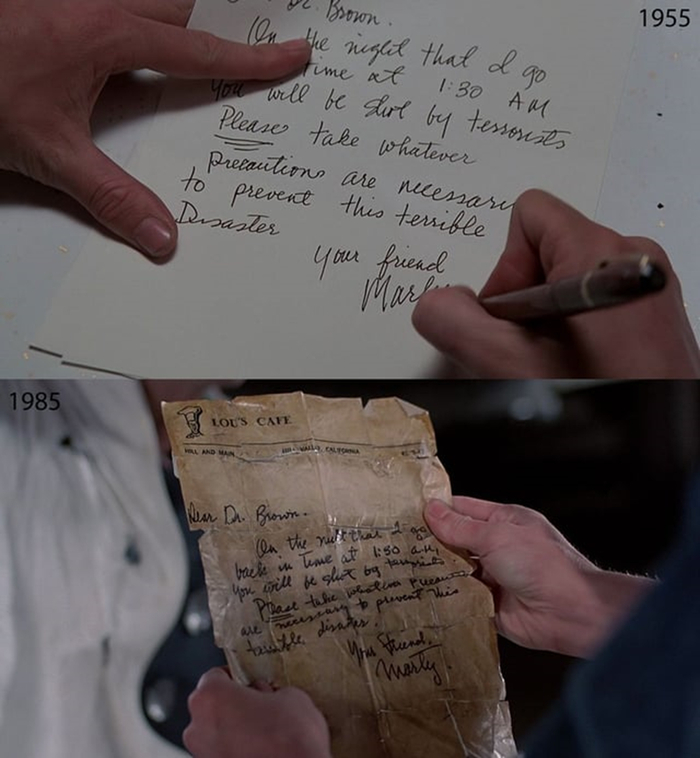 1955
Dr. Brown.
On the night that I go
time at 1:30 AM
You will be shot by terrorists
Please take whatever
Precautions are necessary
to prevent this terrible
Disaster
your friend
Marty
1985
LOU'S CAFE
HILL AND MAIN HILL VALLEY, CALIFORNIA
Dear Dr. Brown.
On the night that I go
back in Time at 1:30 a.m.
you will be shot by terrorists.
Please take whatever precautions
are necessary to prevent this
terrible disaster.
Your Friend.
Marty.